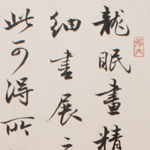 龍眠畫精
細書展之
此可得所